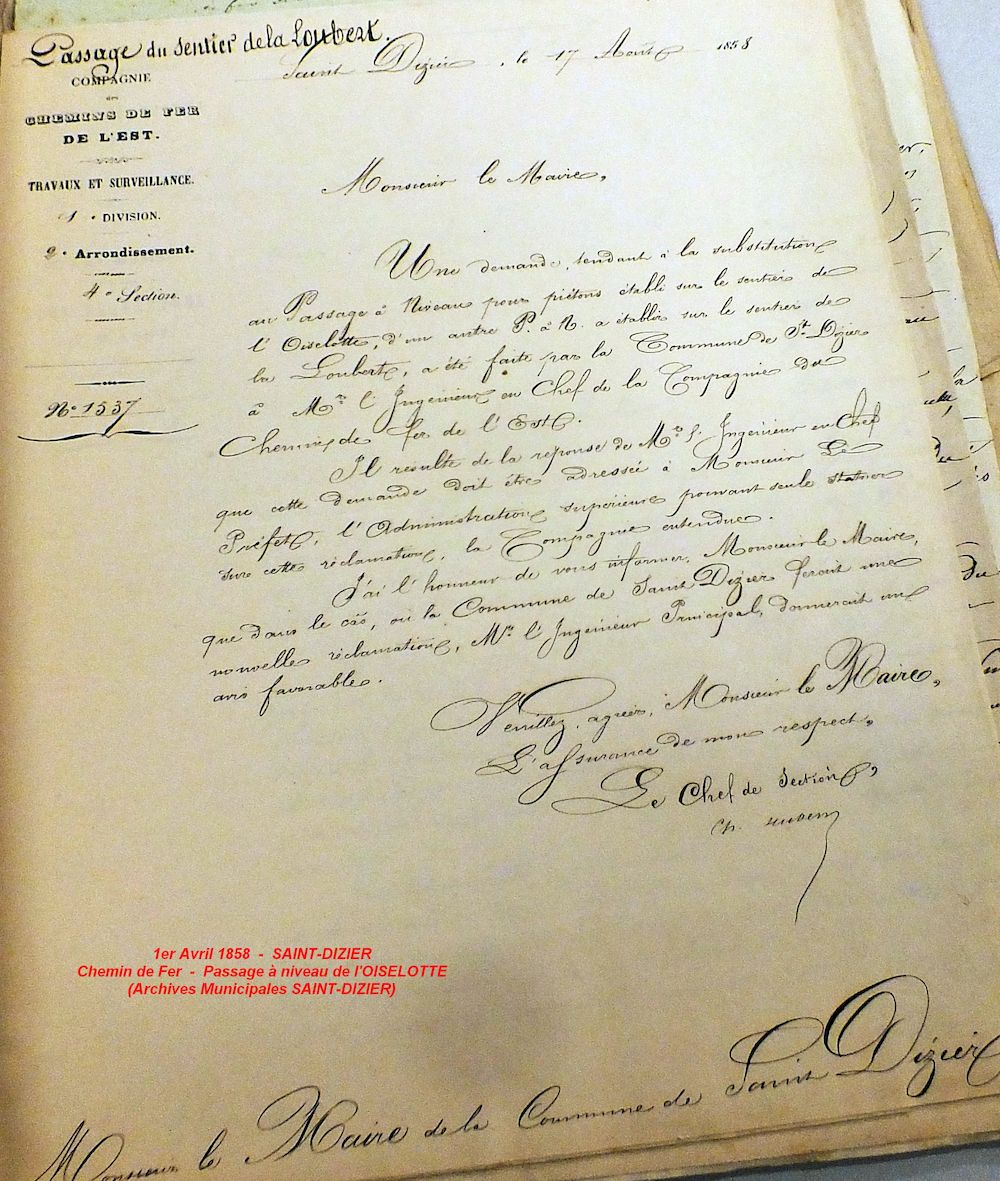 Passage du Sentier de la Loubert.
COMPAGNIE
des
CHEMINS DE FER
DE L'EST.
TRAVAUX ET SURVEILLANCE.
1e DIVISION.
2e Arrondissement.
4e Section.
No 1537
Saint Dizier, le 17 Août 1858
Monsieur le Maire,
Une demande, tendant à la substitution
au Passage à Niveau pour piétons établi sur le sentier de
l'Oiselotte, d'un autre P. à N. a établir sur le sentier de
la Loubert, a été faite par la Commune de St Dizier
à Mr l'Ingenieur en Chef de la Compagnie du
Chemin de fer de l'Est.
Il resulte de la reponse de Mr l'Ingenieur en Chef
que cette demande doit être adressée à Monsieur Le
Préfet, l'Administration supérieure pouvant seule statuer
sur cette réclamation, la Compagnie entendue.
J'ai l'honneur de vous informer, Monsieur le Maire,
que dans le cas, où la Commune de Saint Dizier ferait une
nouvelle réclamation, Mr l'Ingenieur Principal, donnerait un
avis favorable.
Veuillez, agréer, Monsieur le Maire,
L'assurance de mon respect,
Le Chef de Section,
Ch.
1er Avril 1858 - SAINT-DIZIER
Chemin de Fer - Passage à niveau de l'OISELOTTE
(Archives Municipales SAINT-DIZIER)
Monsieur le Maire de la Commune de Saint Dizier